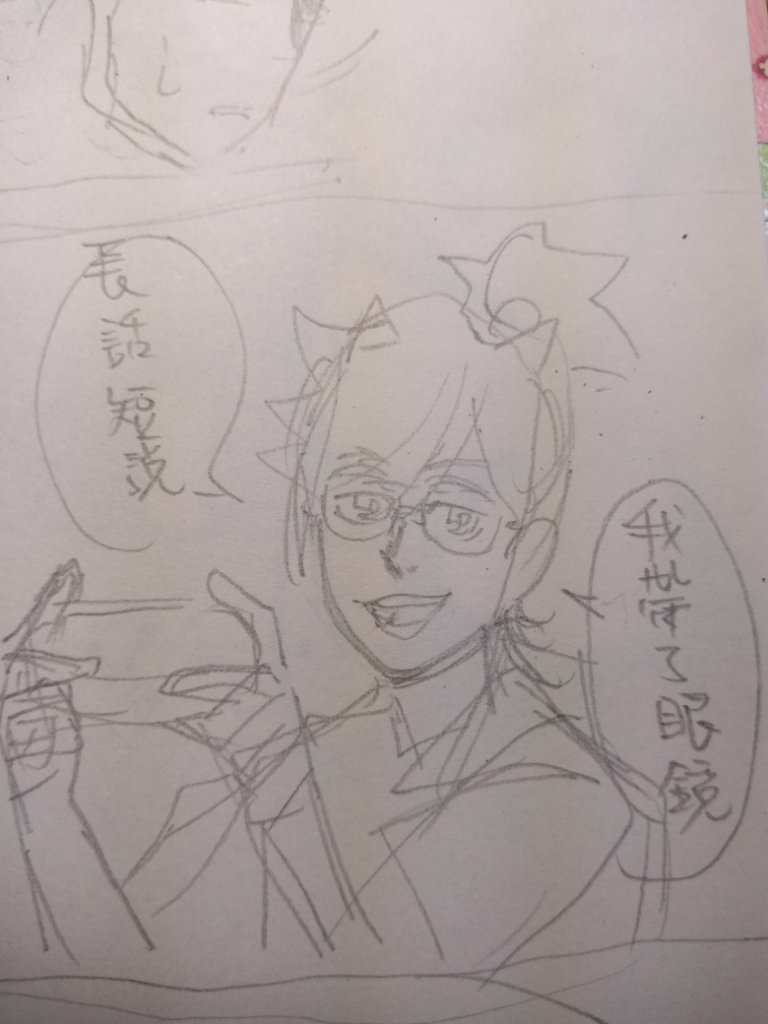 長話短說
我带了眼鏡